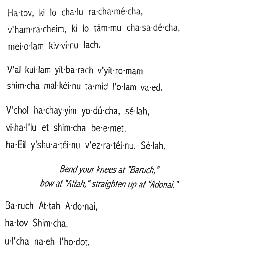 Ha·tov, ki lo cha·lu ra·cha·mé·cha,
v'ham·ra·cheim, ki lo tám·mu cha·sa·dé·cha,
mei·o·lam kiv·vi·nu lach.
V'al kul·lam yit·ba·rach v'yit·ro·mam
shim·cha mal·kéi·nu ta·mid l'o·lam va·ed.
V'chol ha·chay·yim yo·dú·cha, sé·lah,
vi·ha·l'lu et shim·cha be·e·met,
ha·Eil y'shu·a·téi·nu v'ez·ra·téi·nu. Sé·lah.
Bend your knees at "Baruch,"
bow at "Attah," straighten up at "Adonai."
Ba·ruch At·tah A·do·nai,
ha·tov Shim·cha,
u·l'cha na·eh l'ho·dot.